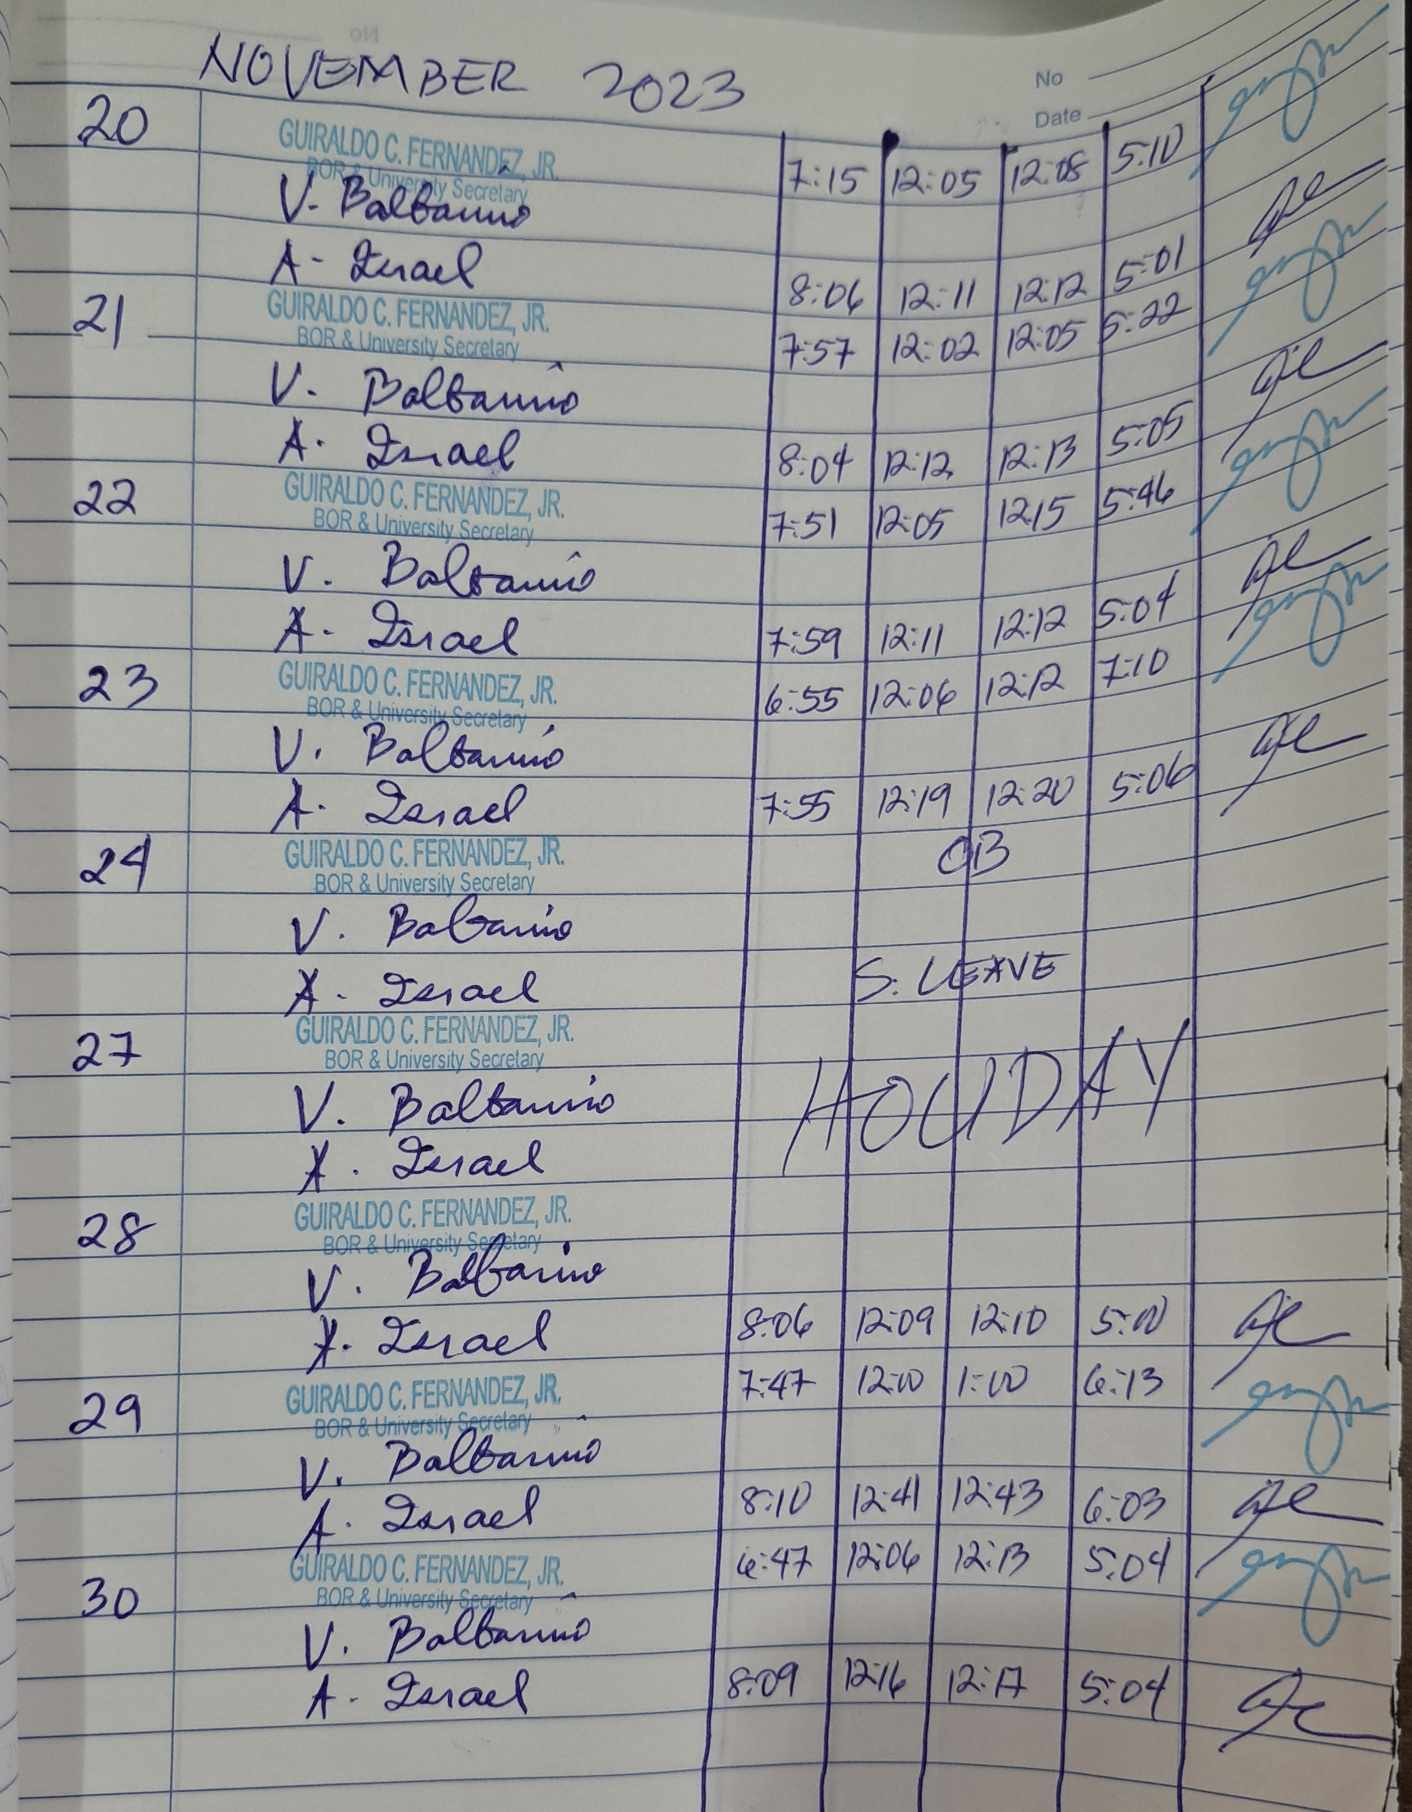 No
NOVEMBER 2023
No
Date
20 GUIRALDO C. FERNANDEZ, JR. 7:15 12:05 12:08 5:10
BOR & University Secretary
V. Balbarino
A. Israel 8:06 12:11 12:12 5:01
21 GUIRALDO C. FERNANDEZ, JR. 7:57 12:02 12:05 5:22
BOR & University Secretary
V. Balbarino
A. Israel 8:04 12:12 12:13 5:05
22 GUIRALDO C. FERNANDEZ, JR. 7:51 12:05 12:15 5:46
BOR & University Secretary
V. Balbarino
A. Israel 7:59 12:11 12:12 5:04
23 GUIRALDO C. FERNANDEZ, JR. 6:55 12:06 12:12 7:10
BOR & University Secretary
V. Balbarino
A. Israel 7:55 12:19 12:20 5:06
24 GUIRALDO C. FERNANDEZ, JR. OB
BOR & University Secretary
V. Balbarino
A. Israel S. LEAVE
27 GUIRALDO C. FERNANDEZ, JR.
BOR & University Secretary
V. Balbarino HOLIDAY
A. Israel
28 GUIRALDO C. FERNANDEZ, JR.
BOR & University Secretary
V. Balbarino
A. Israel 8:06 12:09 12:10 5:00
29 GUIRALDO C. FERNANDEZ, JR. 7:47 12:00 1:00 6:13
BOR & University Secretary
V. Balbarino
A. Israel 8:10 12:41 12:43 6:03
30 GUIRALDO C. FERNANDEZ, JR. 6:47 12:06 12:13 5:04
BOR & University Secretary
V. Balbarino
A. Israel 8:09 12:16 12:17 5:04